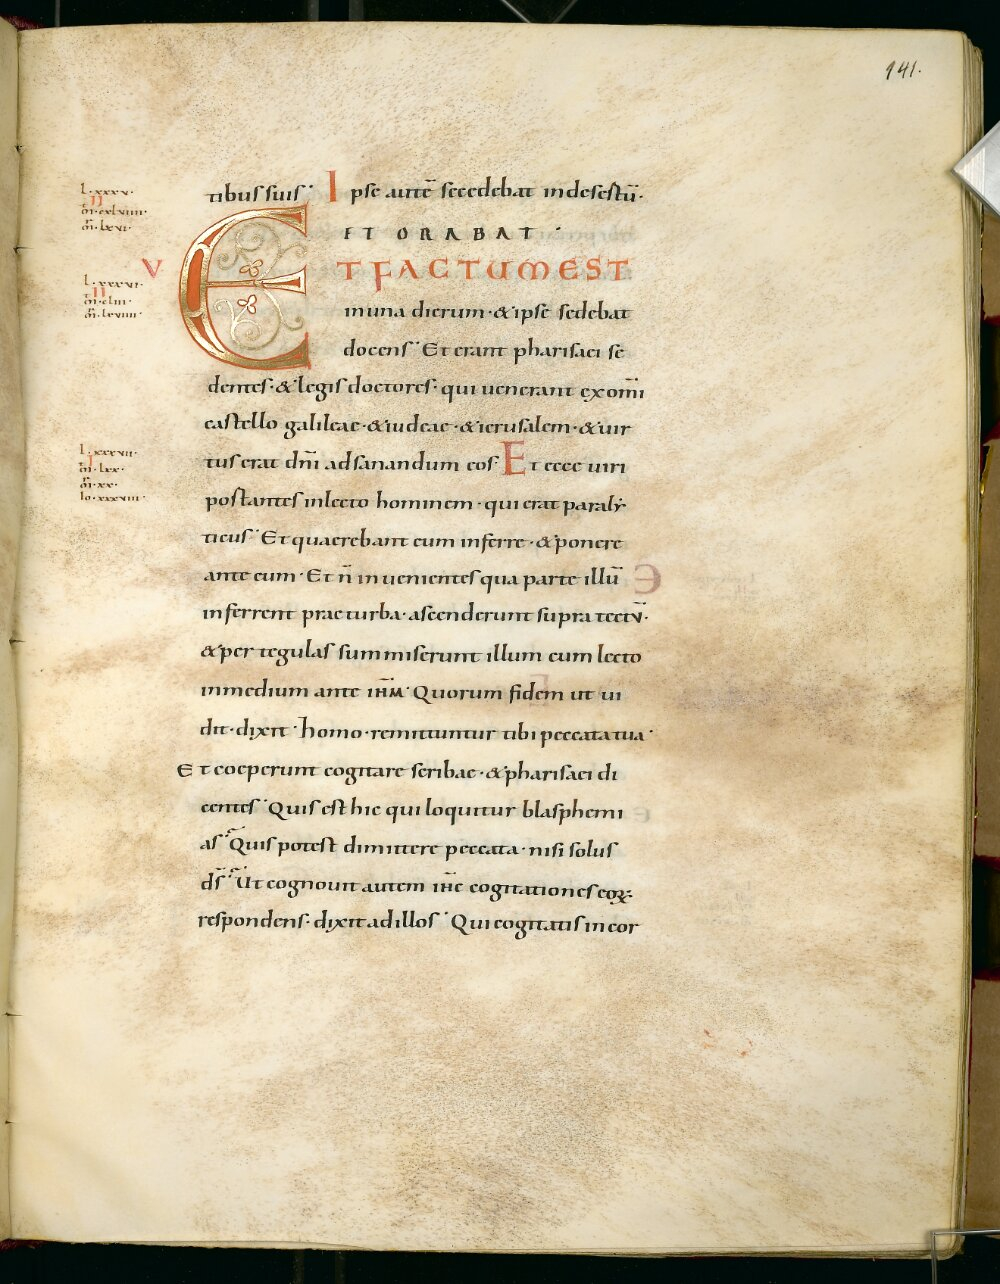 141.
tibus suis· Ipse autē secedebat indesestū·
ET ORABAT·
ET FACTUM EST
V
inuna dierum·&ipse sedebat
docens· Et erant pharisaei se
dentes·&legis doctores· qui uenerant exomī
castello galileae·&iudeae·&ierusalem·&uir
tus erat dnī adsanandum eos· Et ecce uiri
postantes inlecto hominem·qui erat paraly
ticus· Et quaerebant eum inferre·&ponere
ante eum· Et n̄ inuenientes qua parte illū
inferrent prae turba· ascenderunt supra tectū·
&per tegulas summiserunt illum cum lecto
inmedium ante ihm̄· Quorum fidem ut ui
dit· dixit· homo·remittuntur tibi peccata tua·
Et coeperunt cogitare scribae·&pharisaei di
centes· Quis est hic qui loquitur blasphemi
as· Quis potest dimittere peccata·nisi solus
ds̄· Ut cognouit autem ihc̄ cogitationes eoꝝ·
respondens· dixit adillos· Qui cogitatis incor
L·xxxv·
II
m̄·cxlviiii·
m̄·lxvi·
L·xxxvi·
II
m̄·cliii·
m̄·lxviiii·
L·xxxvii·
I
m̄·lxx·
m̄·xx·
Io·xxxviii·